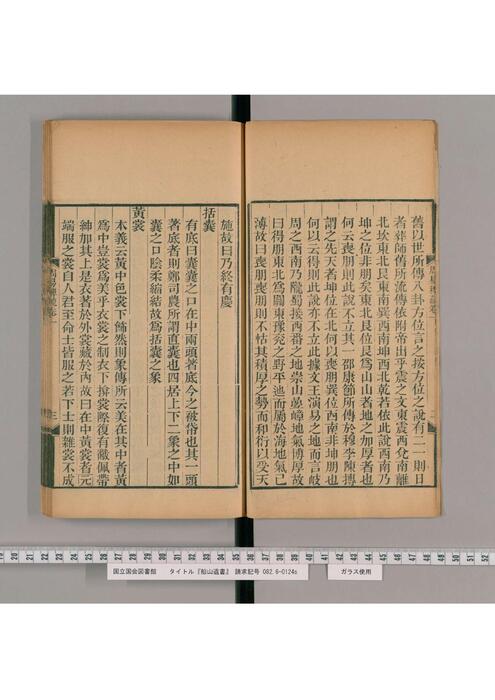 舊以世所傳八卦方位言之按方位之說有二一則日
者葬師舊所流傳依附帝出乎震之文東震西兌南離
北坎東北艮東南巽西南坤西北乾若依此說西南乃
坤之位非朋矣東北艮位艮爲山山者地之加厚者也
何云喪朋則此說不立其一邵康節所傳於穆李陳摶
謂之先天者坤位在北何以喪朋巽位西南非坤朋也
何以云得則此說亦不立此據文王演易之地而言岐
周之西南乃隴蜀接西番之地崇山必嶂地氣博厚故
曰得朋東北爲關東豫兗之野平迤而屬於海地氣已
薄故曰喪朋喪朋則不怙其積厚之勢而和衍以受天
施故曰乃終有慶
括囊
有底曰囊囊之口在中兩頭著底今之被帒也其一頭
著底者則鄭司農所謂直囊也四居上下二象之中如
囊之口陰柔縮結故爲括囊之象
黃裳
本義云黃中色裳下飾然則象傳所云美在其中者黃
爲中豈裳爲美乎衣裳之制衣下揜裳際復有黻佩帶
紳加其上是衣著於外裳藏於內故曰在中黃裳者元
端服之裳自人君至命士皆服之若下士則雜裳不成
国立国会図書館 タイトル『船山遺書』 請求記号 082.6-0124s
ガラス使用